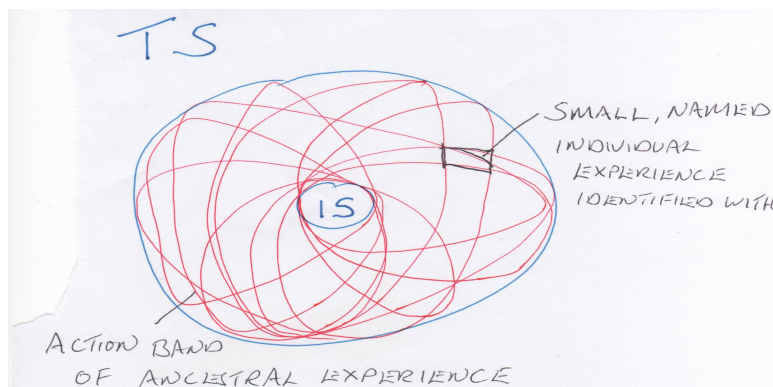 TS
SMALL, NAMED
INDIVIDUAL
EXPERIENCE
IDENTIFIED WITH
IS
ACTION BAND
OF ANCESTRAL EXPERIENCE